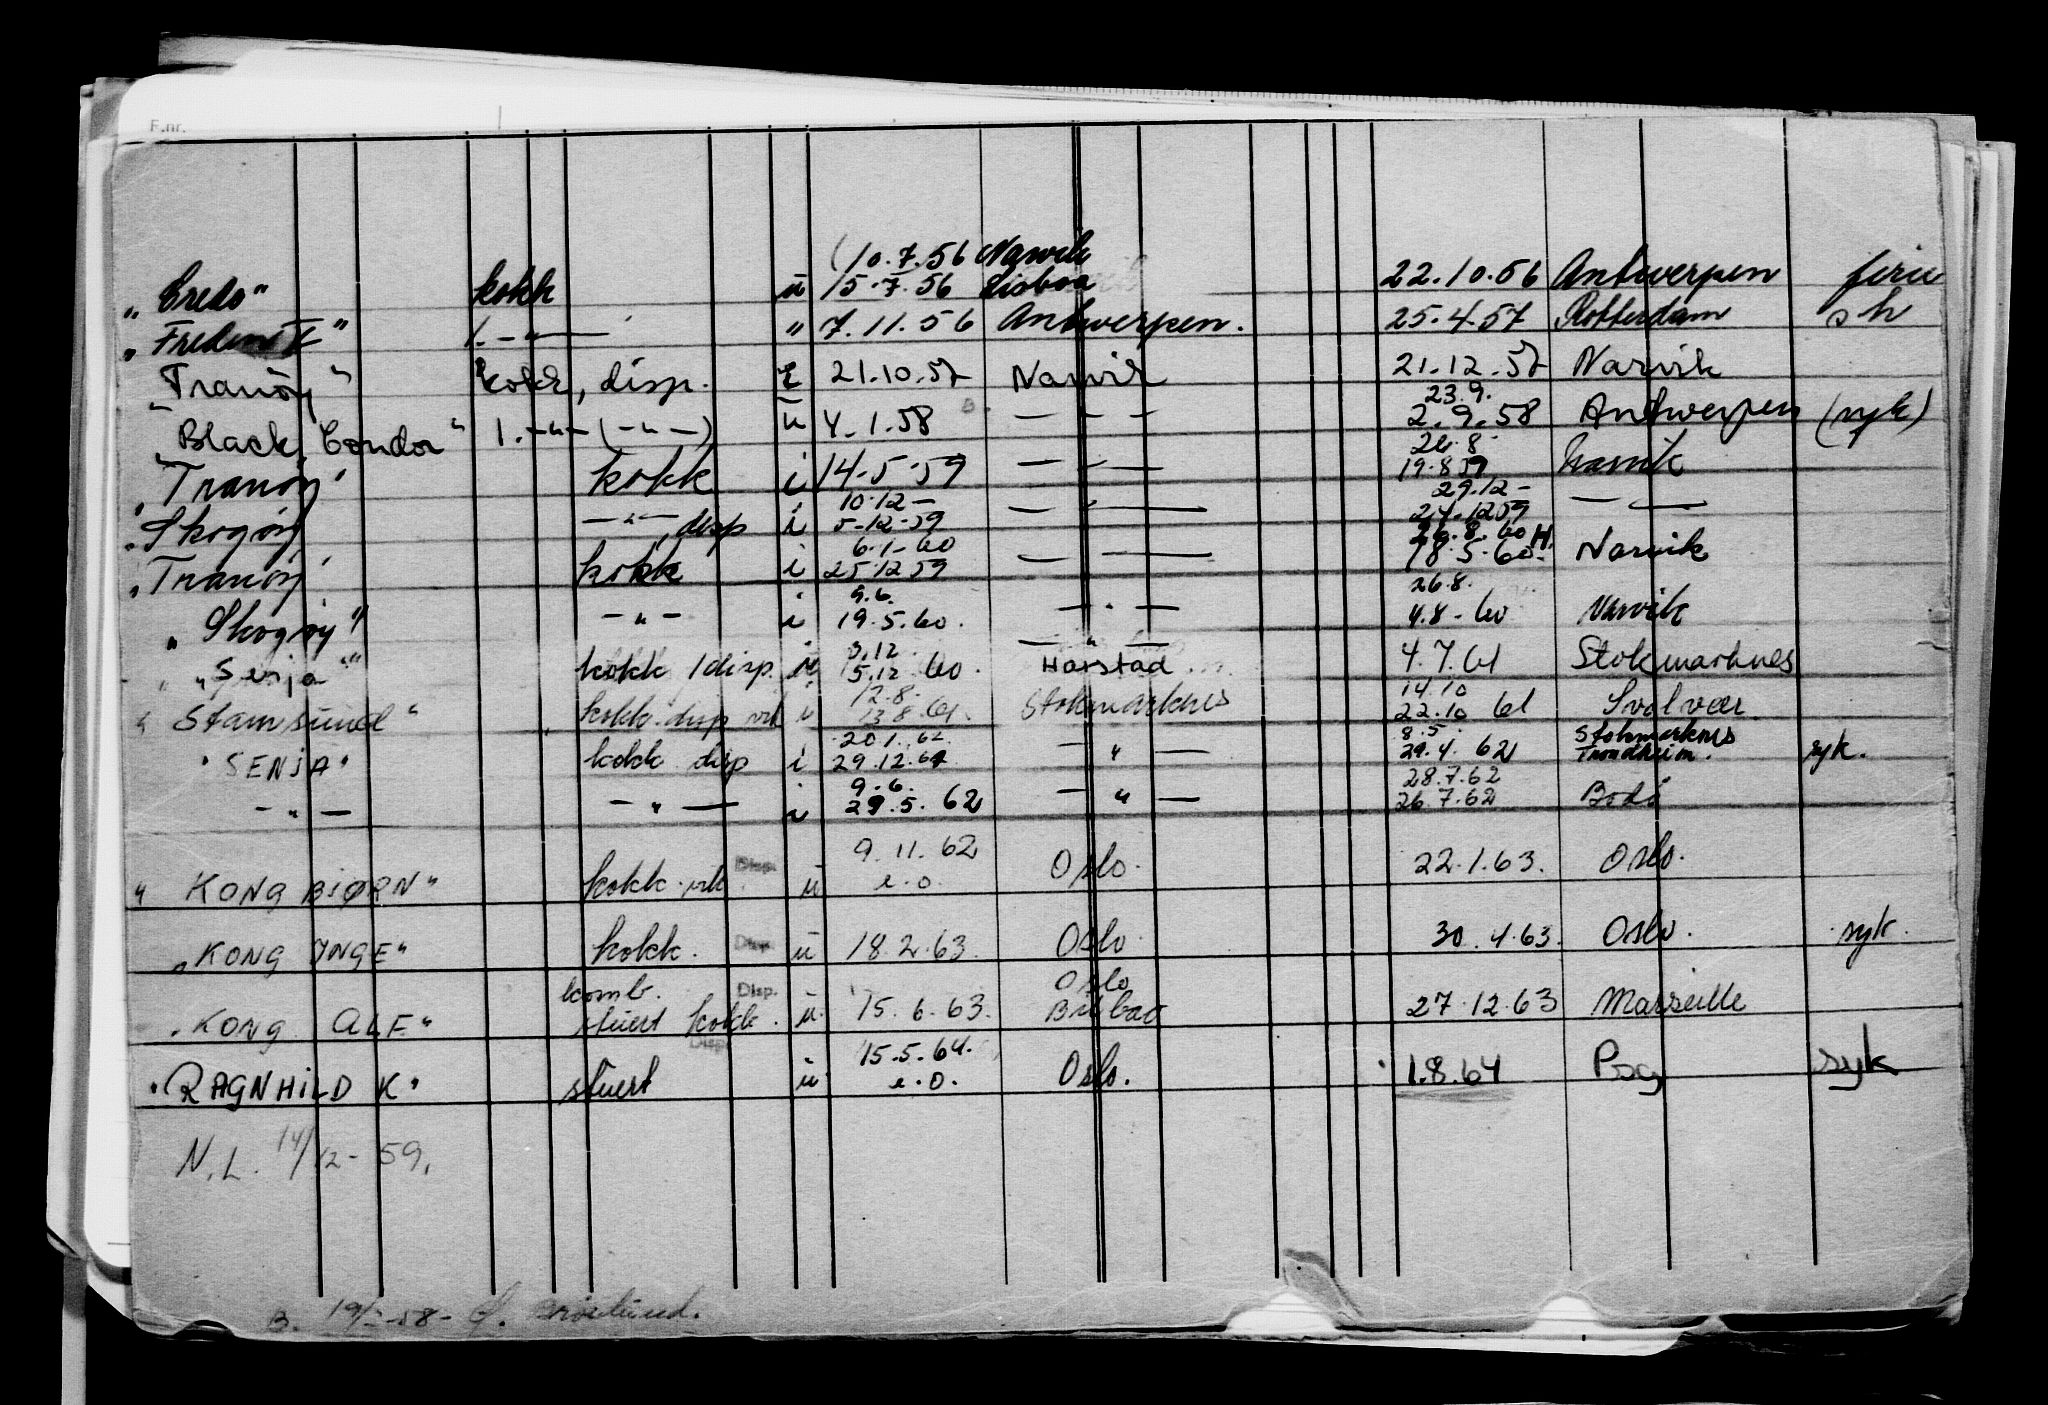 F.nr.
(10.7.56 Narvik
"Credo" kokk u 15.7.56 Lisboa 22.10.56 Antwerpen ferie
" 1. -"- " 7.11.56 Antwerpen. 25.4.57 Rotterdam sh
"Tranöy" kokk, disp. 21.10.57 Narvik 21.12.57 Narvik
23.9.
"Black Condor" 1.-"- (-"-) u 4.1.58 - " - 2.9.58 Antwerpen (syk)
26.8
"Tranöy" kokk i 14.5.59 - " - 19.8.59 Narvik
10.12 - 29.12 -
"Skogöy -"- disp i 5-12-59 - " - 24.12.59 - " -
6.1-60 26.8.60 H.
"Tranöy" kokk i 25.12.59 - " - 18.5.60 Narvik
9.6. 26.8.
"Skogöy" - " - i 19.5.60. - " - 4.8-60 Narvik
3.12. - " -
"Senja" kokk/disp. 15.12.60. Harstad 4.7.61 Stokmarknes
12.8. 14.10
"Stamsund" kokk.disp vik i 13.8.61. Stokmarknes 22.10 61 Svolvær.
20.1.62. 8.5. Stokmarknes
"SENJA" kokk disp i 29.12.61 - " - 29.4.62 Trondheim. syk.
9.6. 28.7.62
- " - - " - i 29.5.62 - " - 26.7.62 Bodö
9.11.62
"KONG BJØRN" kokk.vik Disp. u e.o. Oslo. 22.1.63. Oslo.
"KONG INGE" kokk. Disp. u 18.2.63. Oslo. 30.4.63. Oslo. syk.
komb. Disp. Oslo
"KONG ALF" stuert kokk. u. 15.6.63. Bilbao 27.12.63 Marseille
Disp. 15.5.64.
"RAGNHILD K" stuert u e.o. Oslo. 1.8.64 Psg syk
N.L. 14/12-59.
B.